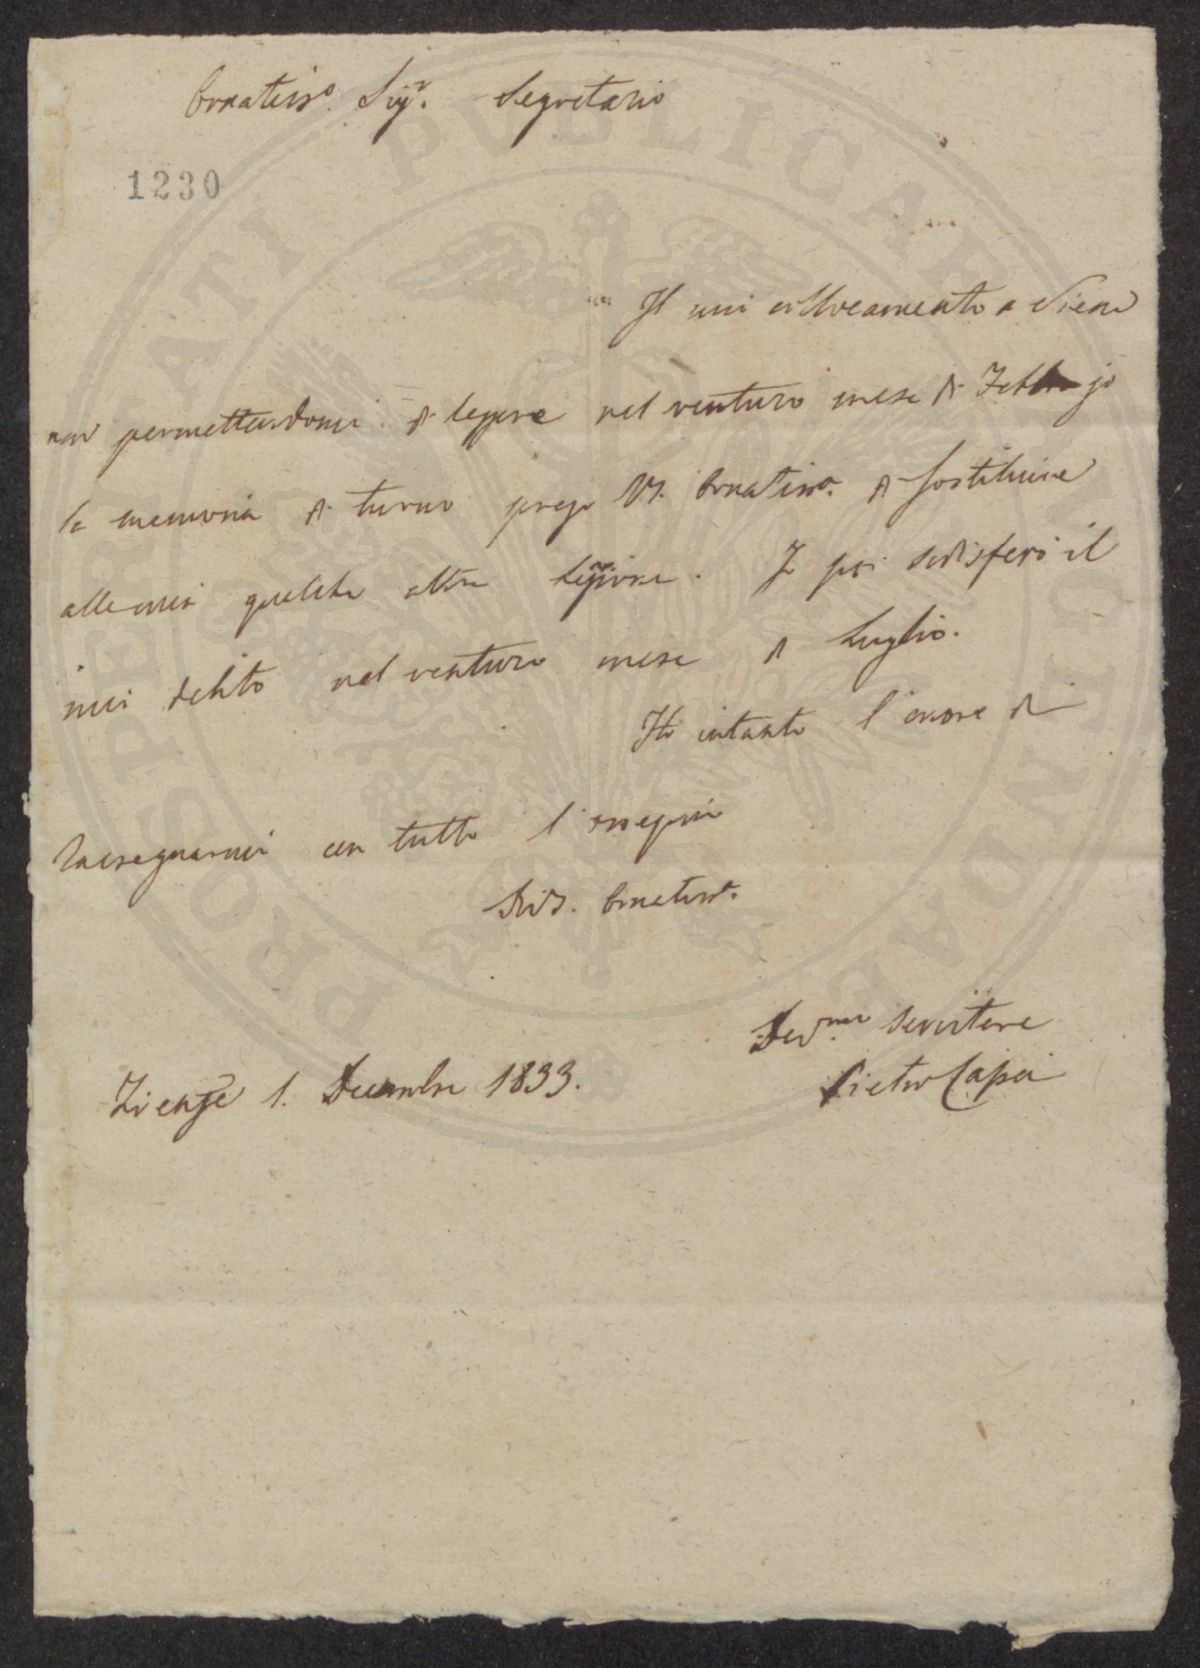 Ornatiss.o Sig.r Segretario
1230
Il mio collocamento a Siena
non permettendomi di leggere nel venturo mese di Febbrajo
la memoria di turno prego VS. Ornatiss.a di sostituire
alla mia qualche altra lezione. Io poi sodisferò il
mio debito nel venturo mese di Luglio.
Ho intanto l'onore di
rassegnarmi con tutto l'ossequio
Di VS. Ornatiss.a
Dev.mo Servitore
Firenze 1. Decembre 1833.
Pietro Capei
PROSPERITATI PUBLICAE AUGENDAE